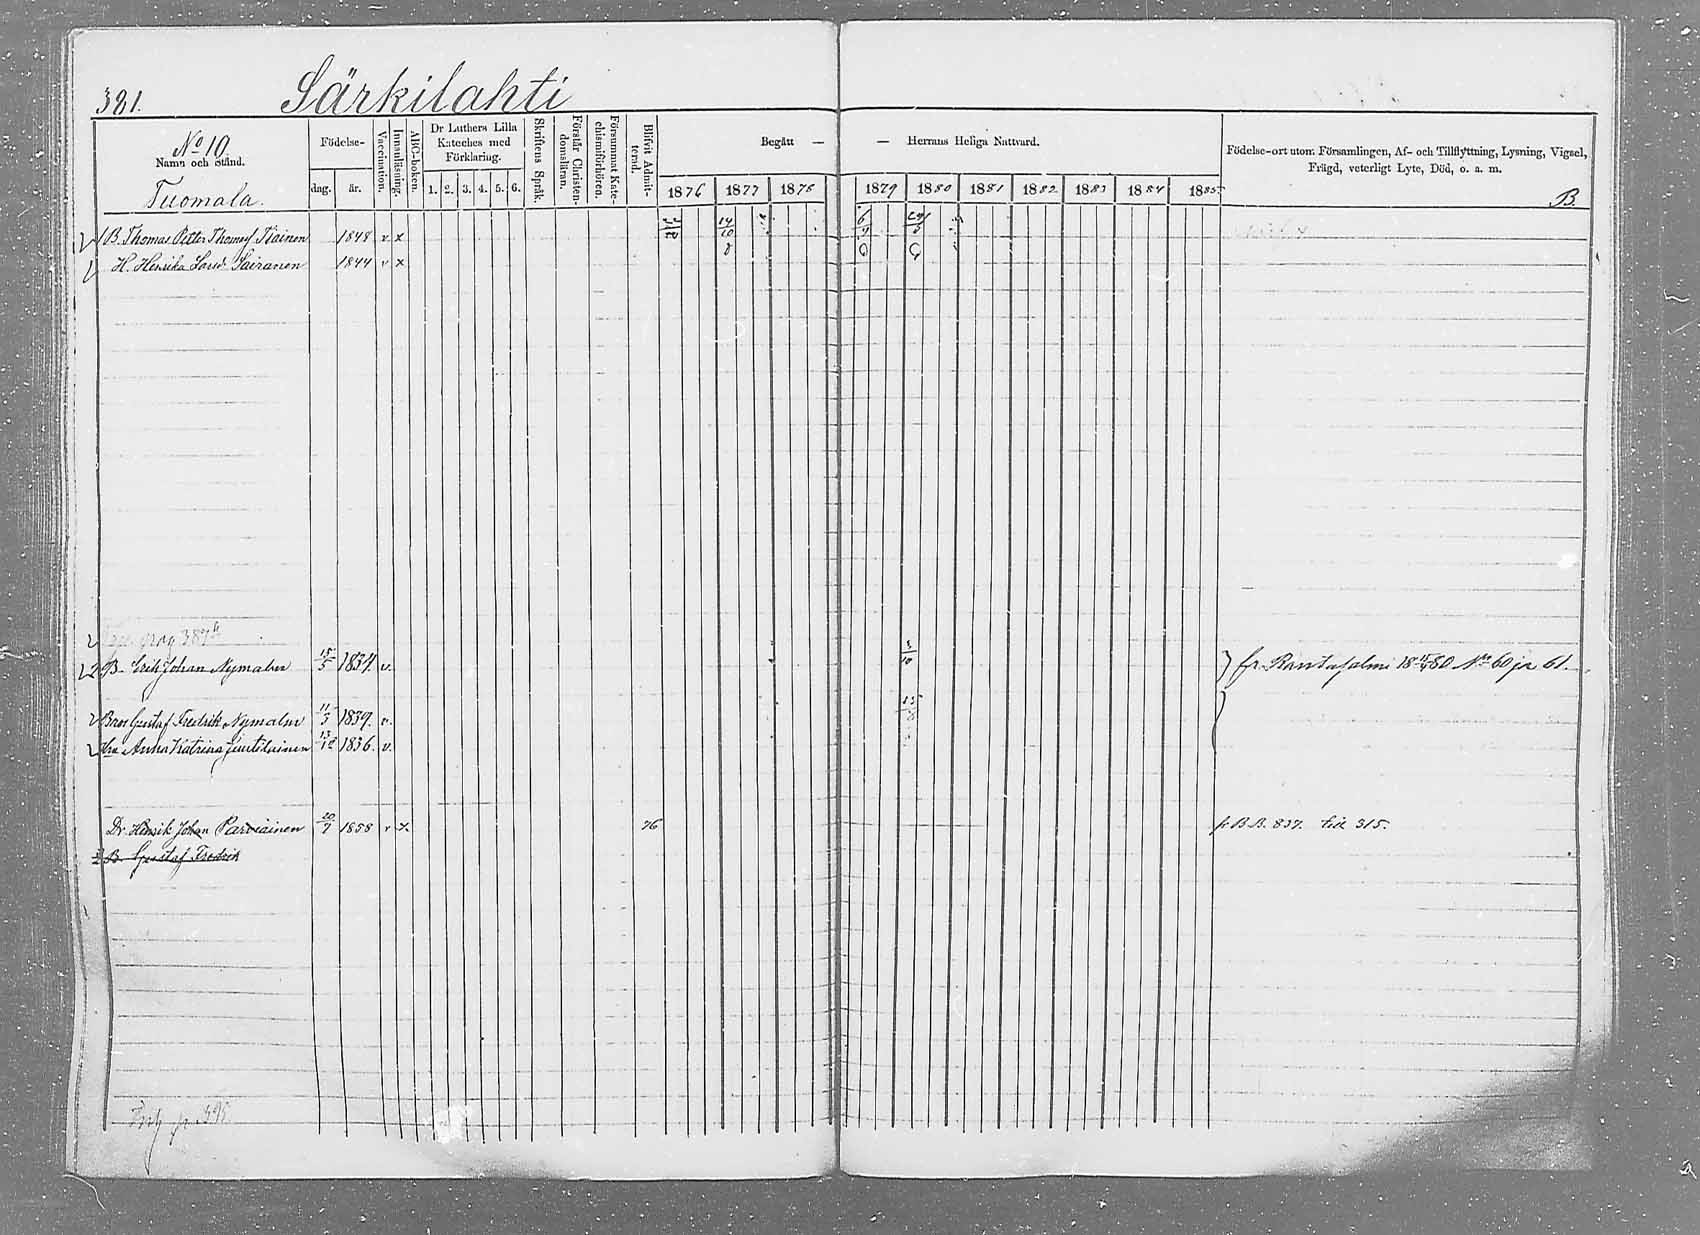 381.
Särkilahti
No 10.
Namn och Stånd.
Tuomala.
Födelse-
dag. år.
Vaccination.
Innanläsning.
ABC-boken.
Dr Luthers Lilla Kateches med Förklaring.
1. 2. 3. 4. 5. 6.
Skriftens Språk.
Förstår Christendomsläran.
Försummat Katechismiförhören.
Blifvit Admitterad.
Begått — — Herrans Heliga Nattvard.
1876 1877 1878 1879 1880 1881 1882 1883 1884 1885
Födelse-ort utom Församlingen, Af- och Tillflyttning, Lysning, Vigsel,
Frägd, veterligt Lyte, Död, o. a. m.
B.
1 B. Thomas Petter Thomasf Tiainen 1848 v x
H. Henrika Larsd. Sairanen 1844 v x
pag 387
2 B. Erik Johan Nymalm 15/5 1834. v. 3/10 fr. Rantasalmi 18 15/4 80 No 60 ja 61.
Bror Gustaf Fredrik Nymalm 11/3 1839. v.
Hu. Anna Katrina 13/12 1836. v.
Dr. Henrik Johan Parviainen 20/7 1858 v x 76 fr B.B. 837. till 315.
B. Gustaf Fredrik
p. 395